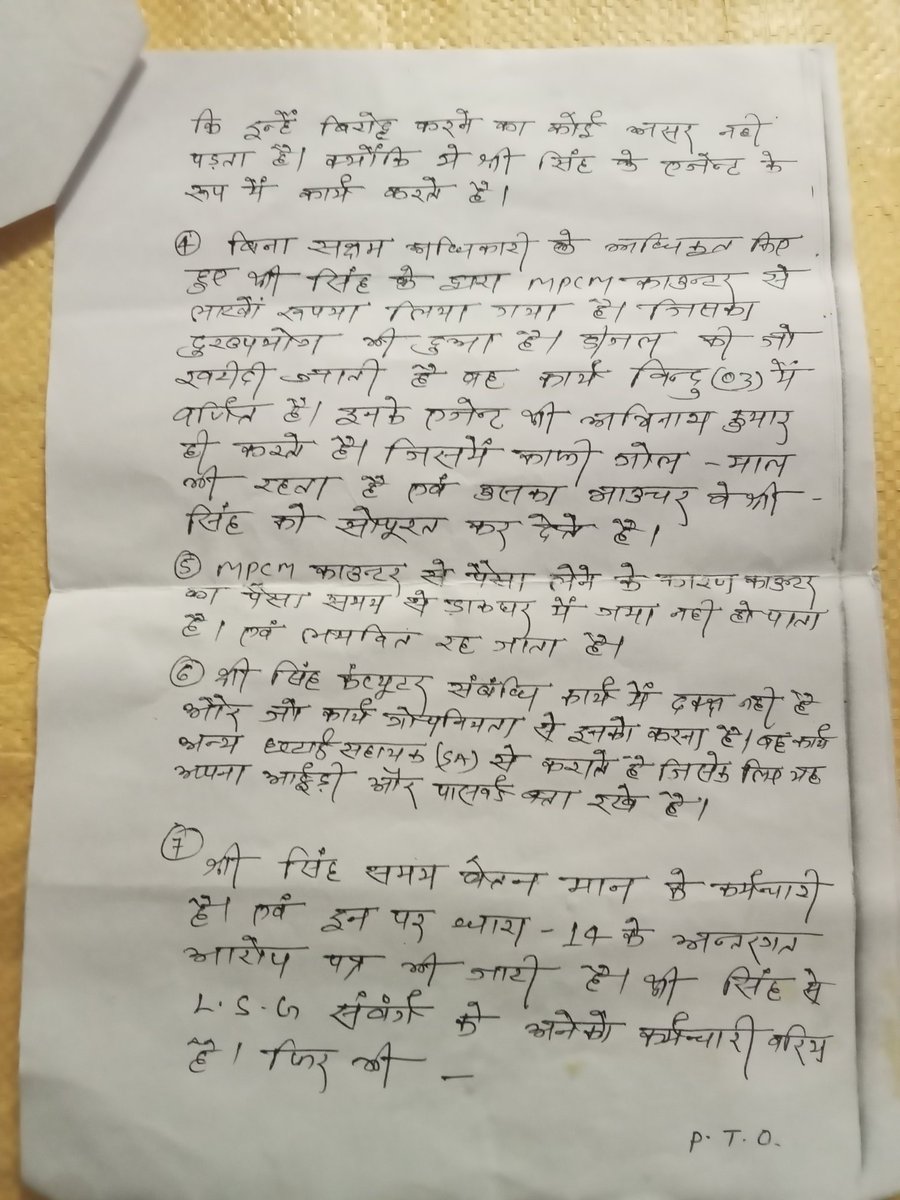 कि इन्हें विरोद्ध करने का कोई असर नही
पड़ता है। क्योंकि ये श्री सिंह के एजेन्ट के
रूप में कार्य करते है।
④ बिना सक्षम अधिकारी के अधिकृत किए
हुए श्री सिंह के द्वारा MPCM काउन्टर से
लाखों रूपया लिया गया है। जिसका
दुरूपयोग भी हुआ है। डीजल की जो
खरीदी जाती है वह कार्य विन्दु (03) में
वर्णित है। इनके एजेन्ट श्री अविनाश कुमार
ही करते है। जिसमें काफी गोल - माल
भी रहता है एवं उसका भाउचर वे श्री -
सिंह को सोपूरत कर देते है।
⑤ MPCM काउन्टर से पैसा लेने के कारण काउन्टर
का पैसा समय से डाकघर में जमा नही हो पाता
है। एवं लमवित रह जाता है।
⑥ श्री सिंह कंप्यूटर संबंधि कार्य में दक्क्ष नही है
और जो कार्य गोपनियता से इनको करना है। वह कार्य
अन्य छटाई सहायक (SA) से कराते है जिसके लिए वह
अपना आईड़ी और पासवर्ड बता रखे है।
⑦ श्री सिंह समय वेतन मान के कर्मचारी
है। एवं इन पर धारा - 14 के अन्तरगत
आरोप पत्र भी जारी है। श्री सिंह से
L. S. G संवंर्ग के अनेको कर्मचारी वरिय
है। फिर भी -
P. T. O.